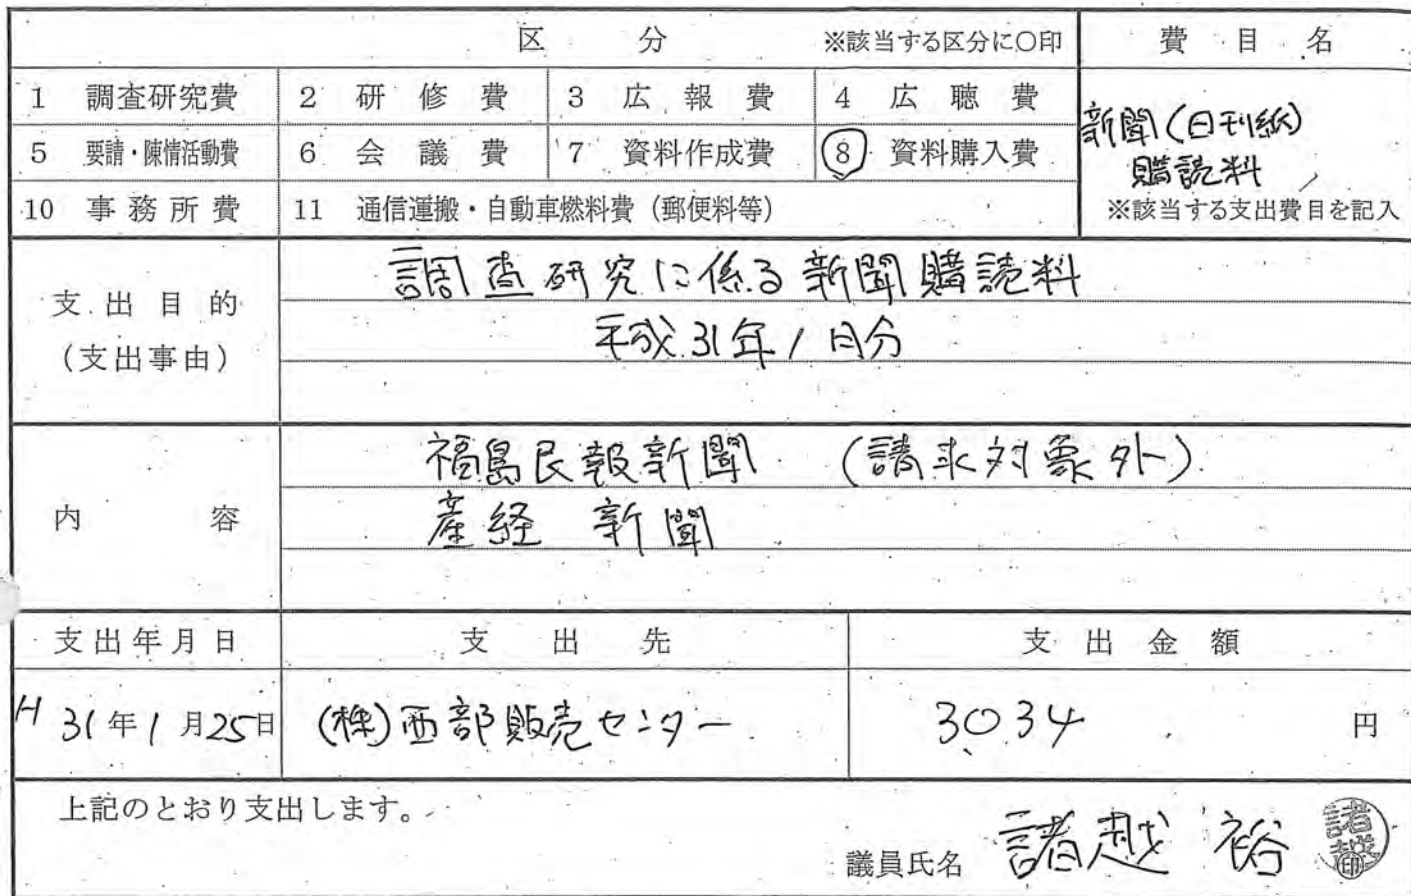 区 分 ※該当する区分に○印 費目名
1 調査研究費 2 研修費 3 広報費 4 広聴費
新聞(日刊紙)
5 要請・陳情活動費 6 会議費 7 資料作成費 8 資料購入費
購読料
10 事務所費 11 通信運搬・自動車燃料費(郵便料等) ※該当する支出費目を記入
調査研究に係る新聞購読料
支出目的
平成31年1月分
(支出事由)
福島民報新聞 (請求対象外)
内容
産経新聞
支出年月日 支出先 支出金額
H31年1月25日 (株)西部販売センター 3034 円
上記のとおり支出します。
議員氏名 諸越 裕 諸越 印